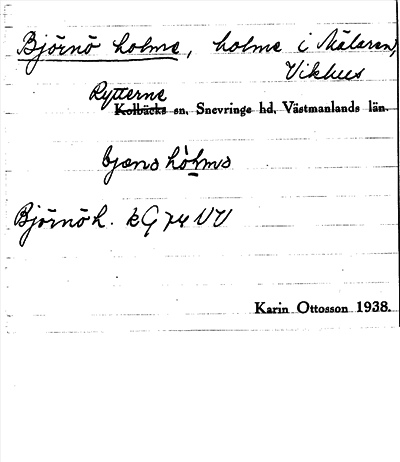 Björnö holme, holme i Mälaren,
Vikhus
Rytterne
Kolbäcks sn, Snevringe hd, Västmanlands län.
bjæns hòlms
Björnö h. kG 74 VV
Karin Ottosson 1938.